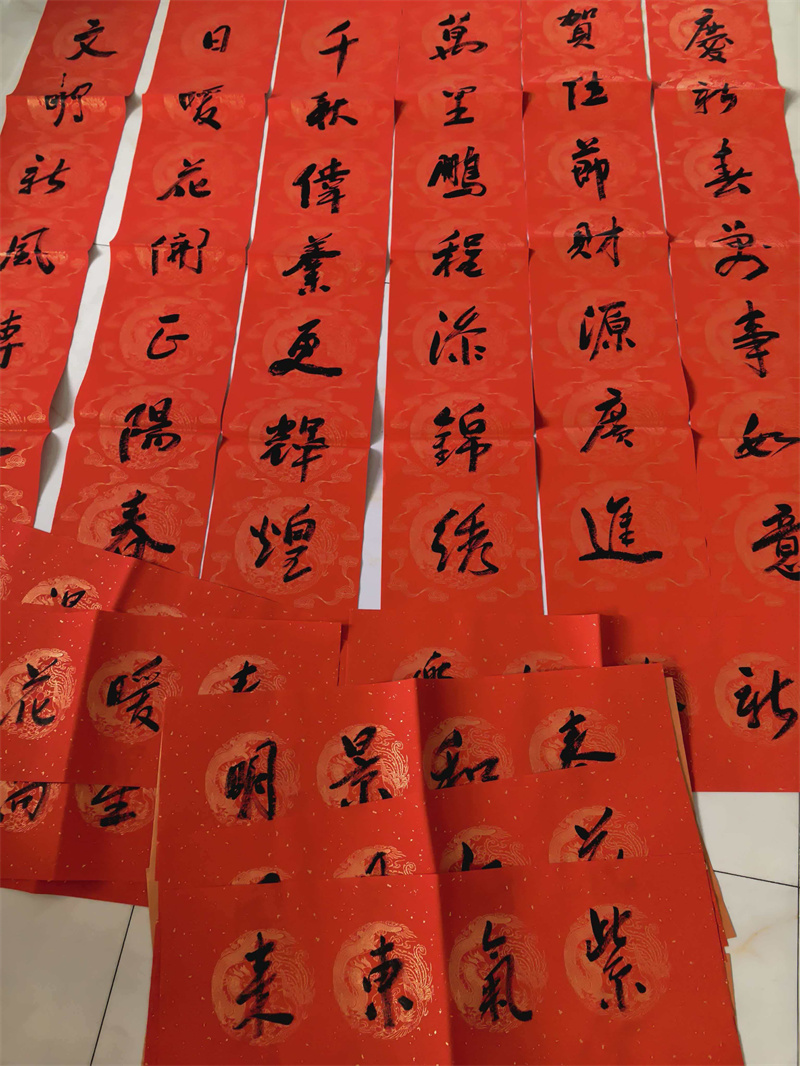 慶新春萬事如意
賀佳節財源廣進
萬里鵬程添錦綉
千秋偉業更輝煌
日暖花開正陽春
文明新風
新
春暖花
春和景明
紫氣東來